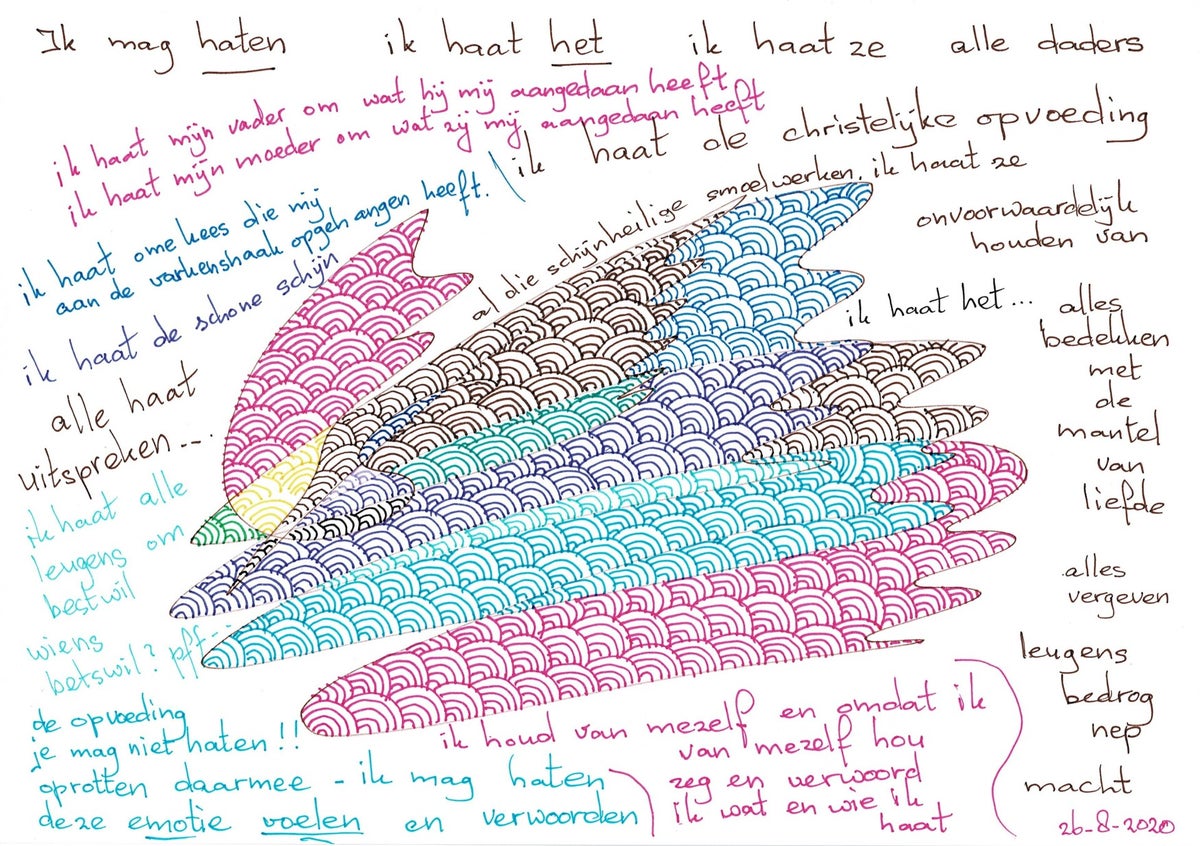 Ik mag haten ik haat het ik haat ze alle daders
ik haat mijn vader om wat hij mij aangedaan heeft
ik haat mijn moeder om wat zij mij aangedaan heeft
ik haat de christelijke opvoeding
al die schijnheilige smoelwerken. ik haat ze
ik haat ome kees die mij
aan de varkenshaak opgehangen heeft.
ik haat de schone schijn
alle haat
uitspreken---.
ik haat alle
leugens om
bestwil
wiens
betswil? pff---
de opvoeding
je mag niet haten!!
oprotten daarmee - ik mag haten
deze emotie voelen en verwoorden
onvoorwaardelijk
houden van
ik haat het...
alles
bedekken
met
de
mantel
van
liefde
alles
vergeven
leugens
bedrog
nep
macht
ik houd van mezelf en omdat ik
van mezelf hou
zeg en verwoord
ik wat en wie ik
haat
26-8-2020